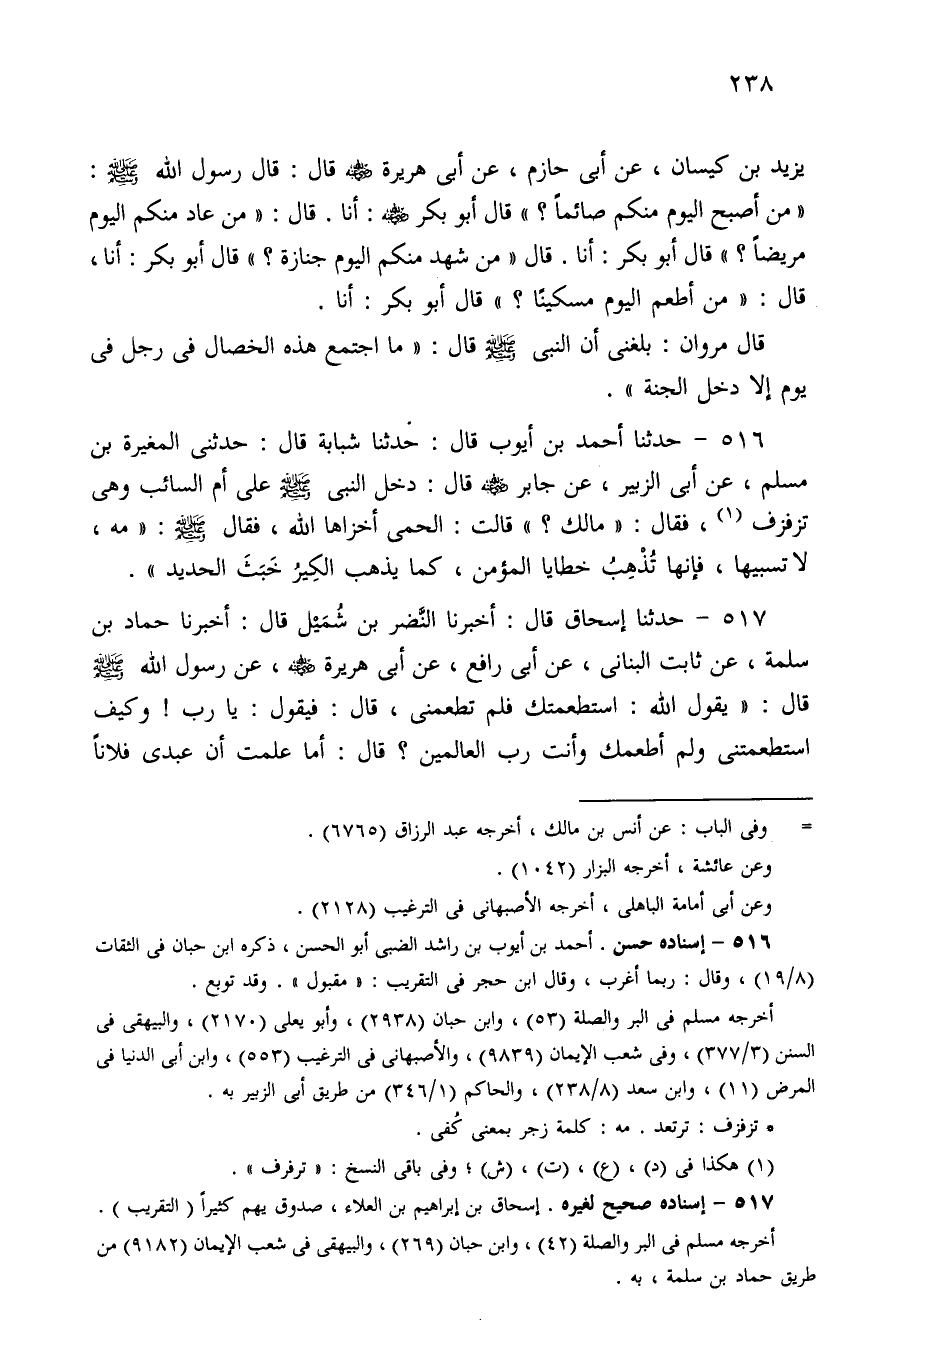 ٢٣٨
يزيد بن كيسان ، عن أبى حازم ، عن أبى هريرة ﷺ قال : قال رسول الله ﷺ :
« من أصبح اليوم منكم صائماً ؟ » قال أبو بكر رضي الله عنه : أنا . قال : « من عاد منكم اليوم
مريضاً ؟ » قال أبو بكر : أنا . قال « من شهد منكم اليوم جنازة ؟ » قال أبو بكر : أنا ،
قال : « من أطعم اليوم مسكينًا ؟ » قال أبو بكر : أنا .
قال مروان : بلغنى أن النبى ﷺ قال : « ما اجتمع هذه الخصال فى رجل فى
يوم إلا دخل الجنة » .
٥١٦ – حدثنا أحمد بن أيوب قال : حدثنا شبابة قال : حدثنى المغيرة بن
مسلم ، عن أبى الزبير ، عن جابر رضي الله عنه قال : دخل النبى ﷺ على أم السائب وهى
تزفزف (١) ، فقال : « مالك ؟ » قالت : الحمى أخزاها الله ، فقال ﷺ : « مه ،
لا تسبيها ، فإنها تُذْهِبُ خطايا المؤمن ، كما يذهب الكِيرُ خَبَثَ الحديد » .
٥١٧ – حدثنا إسحاق قال : أخبرنا النَّضر بن شُمَيْل قال : أخبرنا حماد بن
سلمة ، عن ثابت البنانى ، عن أبى رافع ، عن أبى هريرة رضي الله عنه ، عن رسول الله ﷺ
قال : « يقول الله : استطعمتك فلم تطعمنى ، قال : فيقول : يا رب ! وكيف
استطعمتنى ولم أطعمك وأنت رب العالمين ؟ قال : أما علمت أن عبدى فلاناً
= وفى الباب : عن أنس بن مالك ، أخرجه عبد الرزاق (٦٧٦٥) .
وعن عائشة ، أخرجه البزار (١٠٤٢) .
وعن أبى أمامة الباهلى ، أخرجه الأصبهانى فى الترغيب (٢١٢٨) .
٥١٦ – إسناده حسن . أحمد بن أيوب بن راشد الضبى أبو الحسن ، ذكره ابن حبان فى الثقات
(١٩/٨) ، وقال : ربما أغرب ، وقال ابن حجر فى التقريب : « مقبول » . وقد توبع .
أخرجه مسلم فى البر والصلة (٥٣) ، وابن حبان (٢٩٣٨) ، وأبو يعلى (٢١٧٠) ، والبيهقى فى
السنن (٣٧٧/٣) ، وفى شعب الإيمان (٩٨٣٩) ، والأصبهانى فى الترغيب (٥٥٣) ، وابن أبى الدنيا فى
المرض (١١) ، وابن سعد (٢٣٨/٨) ، والحاكم (٣٤٦/١) من طريق أبى الزبير به .
* تزفزف : ترتعد . مه : كلمة زجر بمعنى كُفى .
(١) هكذا فى (د) ، (ع) ، (ت) ، (ش) ؛ وفى باقى النسخ : « ترفرف » .
٥١٧ – إسناده صحيح لغيره . إسحاق بن إبراهيم بن العلاء ، صدوق يهم كثيراً ( التقريب ) .
أخرجه مسلم فى البر والصلة (٤٢) ، وابن حبان (٢٦٩) ، والبيهقى فى شعب الإيمان (٩١٨٢) من
طريق حماد بن سلمة ، به .